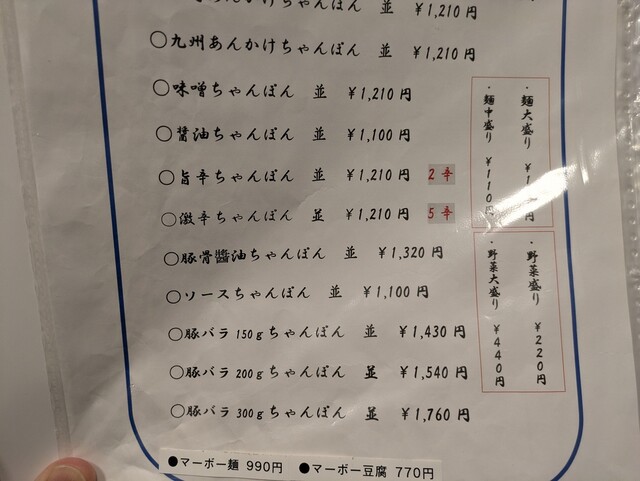 あんかけちゃんぽん 並 ¥1,210円
○九州あんかけちゃんぽん 並 ¥1,210円
○味噌ちゃんぽん 並 ¥1,210円
○醤油ちゃんぽん 並 ¥1,100円
○旨辛ちゃんぽん 並 ¥1,210円 2辛
○激辛ちゃんぽん 並 ¥1,210円 5辛
○豚骨醬油ちゃんぽん 並 ¥1,320円
○ソースちゃんぽん 並 ¥1,100円
○豚バラ150gちゃんぽん 並 ¥1,430円
○豚バラ200gちゃんぽん 並 ¥1,540円
○豚バラ300gちゃんぽん 並 ¥1,760円
・麺大盛り
・麺中盛り ¥110円
・野菜盛り ¥220円
・野菜大盛り ¥440円
●マーボー麺 990円 ●マーボー豆腐 770円